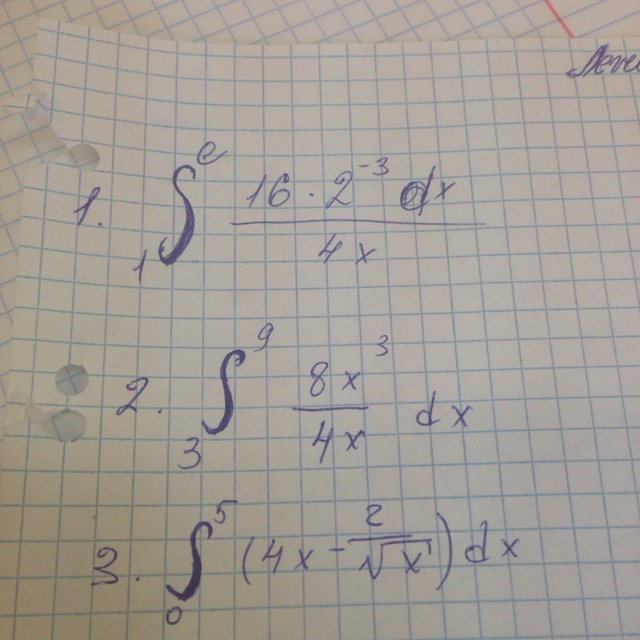 1. ∫₁ᵉ (16 · 2⁻³ dx)/(4x)
2. ∫₃⁹ (8x³)/(4x) dx
3. ∫₀⁵ (4x − 2/√x) dx